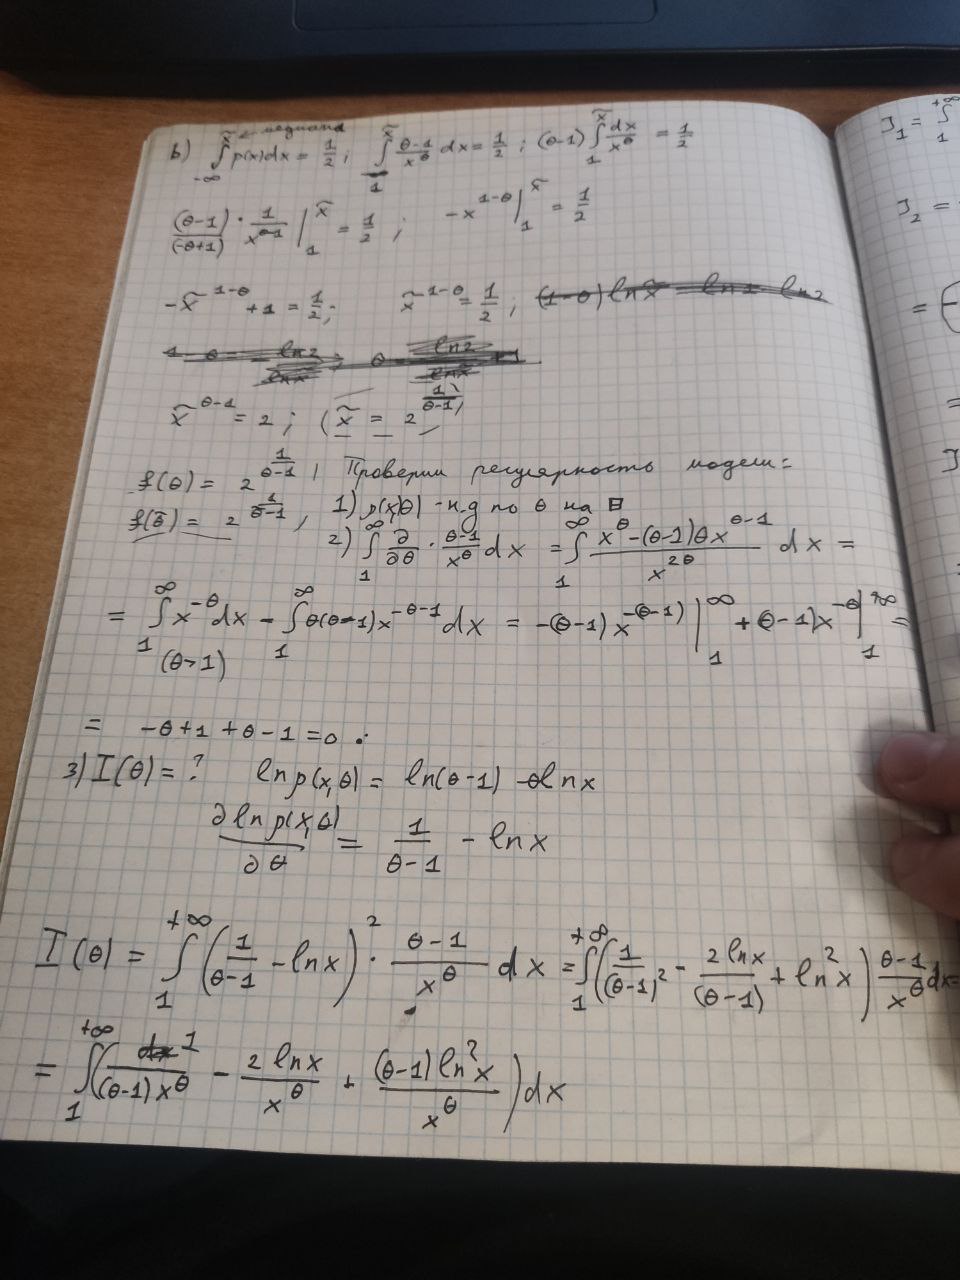 x̃ ← медиана
b) ∫_{-∞}^{x̃} p(x)dx = 1/2; ∫_1^{x̃} (θ-1)/x^θ dx = 1/2; (θ-1) ∫_1^{x̃} dx/x^θ = 1/2
(θ-1)/(-θ+1) · 1/x^{θ-1} |_1^{x̃} = 1/2; -x^{1-θ} |_1^{x̃} = 1/2
-x̃^{1-θ} + 1 = 1/2; x̃^{1-θ} = 1/2;
x̃^{θ-1} = 2; (x̃ = 2^{1/(θ-1)})
f(θ) = 2^{1/(θ-1)}, Проверим регулярность модели:
f(θ̃) = 2^{1/(θ̃-1)}, 1) p(x,θ) - н.д по θ на ⊟
2) ∫_1^∞ ∂/∂θ · (θ-1)/x^θ dx = ∫_1^∞ (x^θ - (θ-1)θx^{θ-1})/x^{2θ} dx =
= ∫_1^∞ x^{-θ}dx - ∫_1^∞ θ(θ-1)x^{-θ-1}dx = -(θ-1)x^{-(θ-1)} |_1^∞ + (θ-1)x^{-θ} |_1^{+∞} =
(θ>1)
= -θ+1+θ-1 = 0 .
3) I(θ) = ? ln p(x,θ) = ln(θ-1) - θlnx
∂lnp(x,θ)/∂θ = 1/(θ-1) - lnx
I(θ) = ∫_1^{+∞} (1/(θ-1) - lnx)^2 · (θ-1)/x^θ dx = ∫_1^{+∞} (1/(θ-1)^2 - 2lnx/(θ-1) + ln^2x) (θ-1)/x^θ dx =
= ∫_1^{+∞} (1/((θ-1)x^θ) - 2lnx/x^θ + (θ-1)ln^2x/x^θ) dx
J_1 = ∫_1^{+∞}
J_2 =
=
=